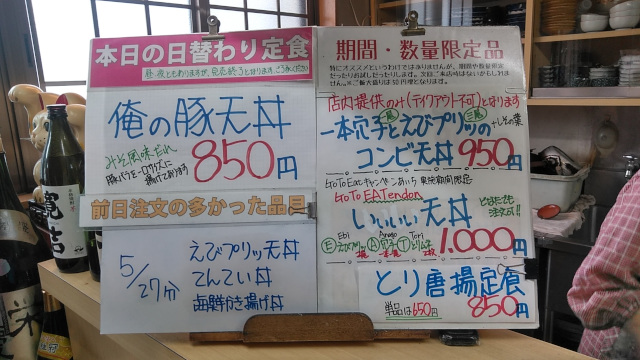 本日の日替わり定食
昼・夜ともありますが、完売終了となります。ご了承ください
俺の豚天丼
みそ風味だれ
850円
前日注文の多かった品目
5/27分
えびプリッ天丼
てんてい丼
歯鮮かき揚げ丼
期間・数量限定品
特にオススメというわけではありませんが、期間や数量限定
だったりお試しだったりします。次回ご来店時はないかもしれま
せん。※ご飯大盛りは50円増となります。
店内提供のみ(テイクアウト不可)となります
一本穴子とえびプリッの
+しその葉
コンビ天丼 950円
GoToEatキャンペーンあいち 実施期間限定
GoTo EATendon
いいいい天丼
どなたでも
注文可!!
Ebi Anago Tori
1.000円
とり唐揚定食
単品は650円
850円
寛
栄